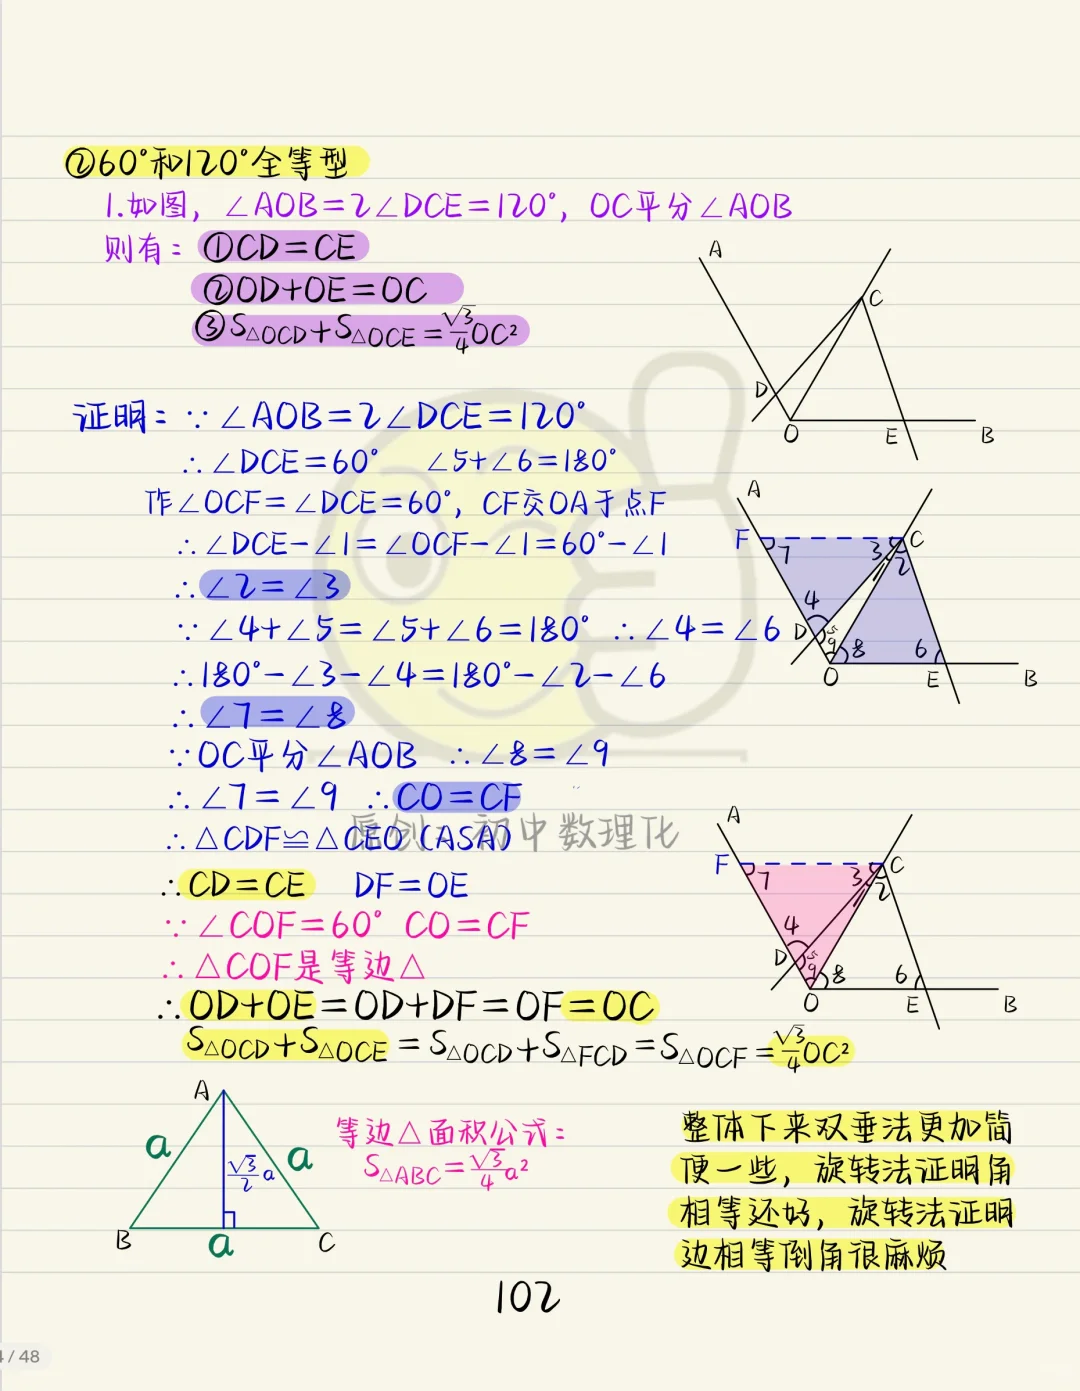 ②60°和120°全等型
1.如图，∠AOB=2∠DCE=120°，OC平分∠AOB
则有：①CD=CE
②OD+OE=OC
③S△OCD+S△OCE=√3/4OC²
A
C
D
O
E
B
证明：∵∠AOB=2∠DCE=120°
∴∠DCE=60° ∠5+∠6=180°
作∠OCF=∠DCE=60°，CF交OA于点F
∴∠DCE-∠1=∠OCF-∠1=60°-∠1
∴∠2=∠3
∵∠4+∠5=∠5+∠6=180° ∴∠4=∠6
∴180°-∠3-∠4=180°-∠2-∠6
∴∠7=∠8
∵OC平分∠AOB ∴∠8=∠9
∴∠7=∠9 ∴CO=CF
∴△CDF≌△CEO (ASA)
∴CD=CE DF=OE
∵∠COF=60° CO=CF
∴△COF是等边△
∴OD+OE=OD+DF=OF=OC
S△OCD+S△OCE=S△OCD+S△FCD=S△OCF=√3/4OC²
A
F
7
3
C
2
4
D
5
9
8
6
O
E
B
A
F
7
3
C
2
4
D
5
9
8
6
O
E
B
原创：初中数理化
A
a
√3/2 a
a
B
a
C
等边△面积公式：
S△ABC=√3/4a²
整体下来双垂法更加简
便一些，旋转法证明角
相等还好，旋转法证明
边相等倒角很麻烦
102
/ 48